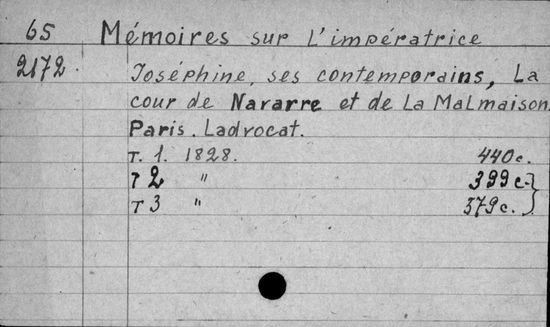 65 Mémoires sur L'impératrice
2172. Joséphine, ses contemporains, La
cour de Nararre et de La Malmaison.
Paris. Ladvocat.
T. 1. 1828. 440c.
T 2 " 399c.
T 3 " 379c.